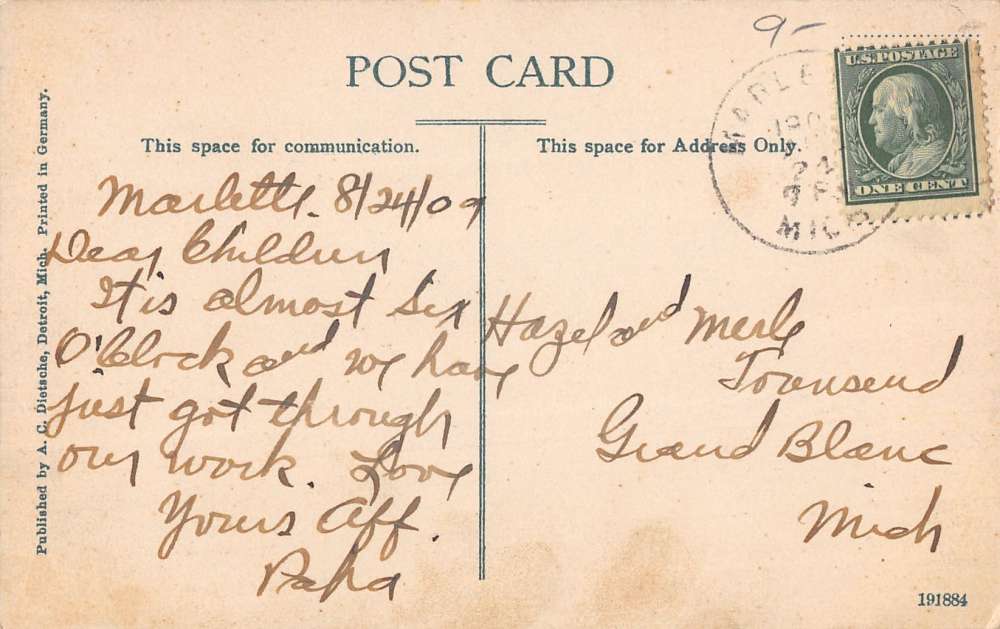 9-
POST CARD
This space for communication.
This space for Address Only.
U.S. POSTAGE
ONE CENT
MICH
Published by A. C. Dietsche, Detroit, Mich. Printed in Germany.
Marlette. 8/24/09
Dear Children
It is almost six
O'Clock and we have
just got through
our work. Love
Yours Aff.
Papa
Hazel and Merle
Townsend
Grand Blanc
Mich
191884